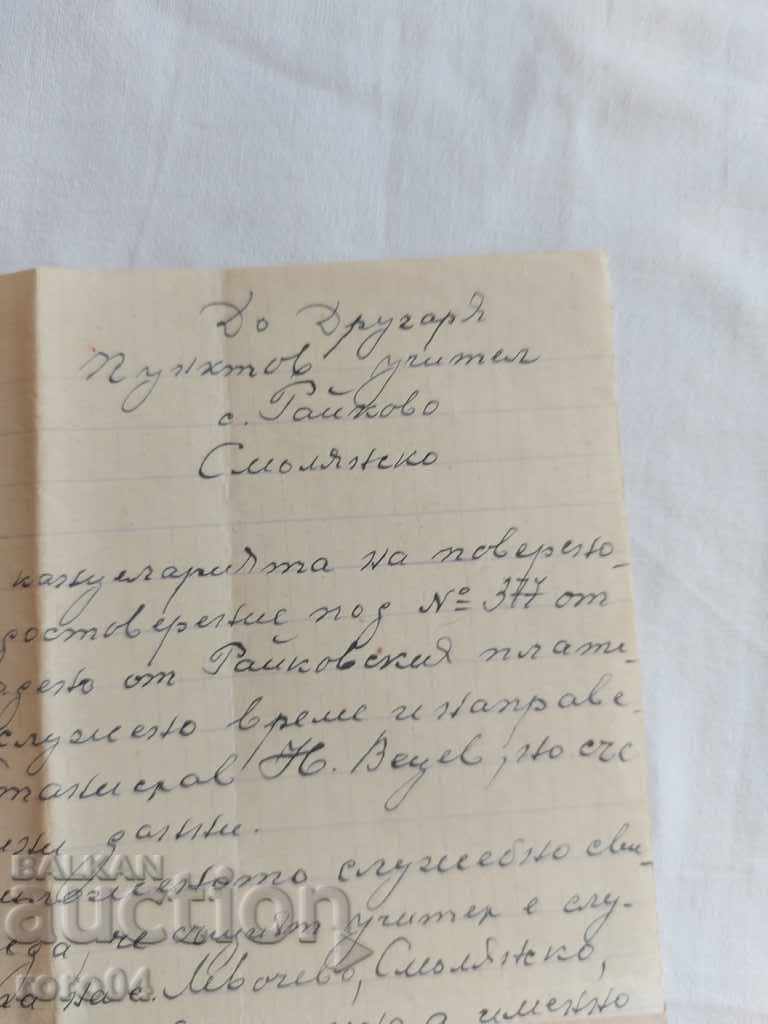 До Другаря
Пунктов учител
с. Райково
Смолянско
канцеларията на поверено-
достоверение под № 377 от
адено от Райковския плате-
служено време и направе-
танислав Н. Вецев, но със
данни.
служебно сви-
че същият учител е слу-
на с. Левочево, Смолянско,
а именно
BALKAN
auction
toro04